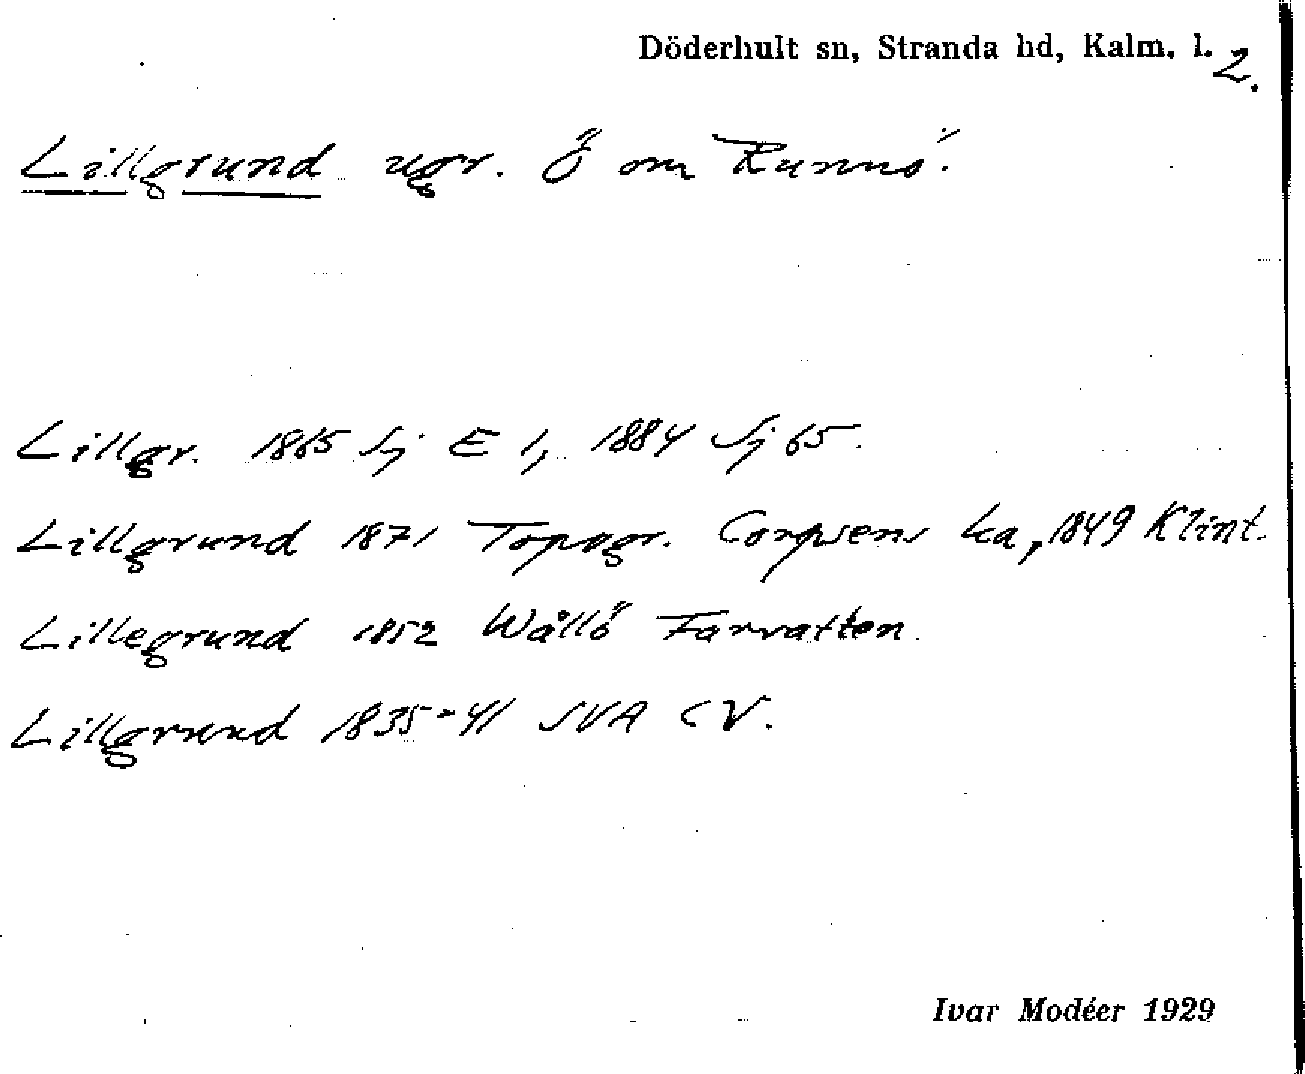 Döderhult sn, Stranda hd, Kalm. l.
2.
Lillgrund ugr. Ö om Runnö.
Lillgr. 1865 Sj E 1, 1884 Sj 65.
Lillgrund 1871 Topogr. Corpsens ka, 1849 Klint.
Lillegrund 1852 Wållö Farvatten.
Lillgrund 1835-41 SVA CV.
Ivar Modéer 1929